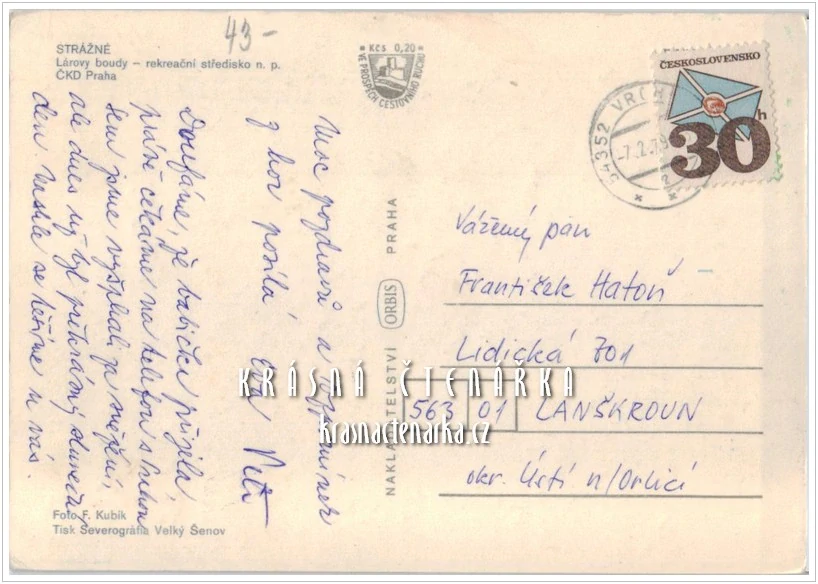 43-
STRÁŽNÉ
Lárovy boudy – rekreační středisko n. p.
ČKD Praha
* Kčs 0,20 *
VE PROSPĚCH CESTOVNÍHO RUCHU
ČESKOSLOVENSKO
30h
54352 VRCH
-7.2.
Moc pozdravů a vzpomínek
z hor posílá Petr
Doufáme, že babička přijela,
právě čekáme na telefon s
jsme
ale dnes už byl překrásný slunečný
den. Mohla se těšíme u vás.
NAKLADATELSTVÍ ORBIS PRAHA
Vážený pan
František Hatoň
Lidická 701
563 01 LANŠKROUN
okr. Ústí n/Orlicí
KRÁSNÁ ČTENÁŘKA
krasnactenarka.cz
Foto F. Kubík
Tisk Severografia Velký Šenov